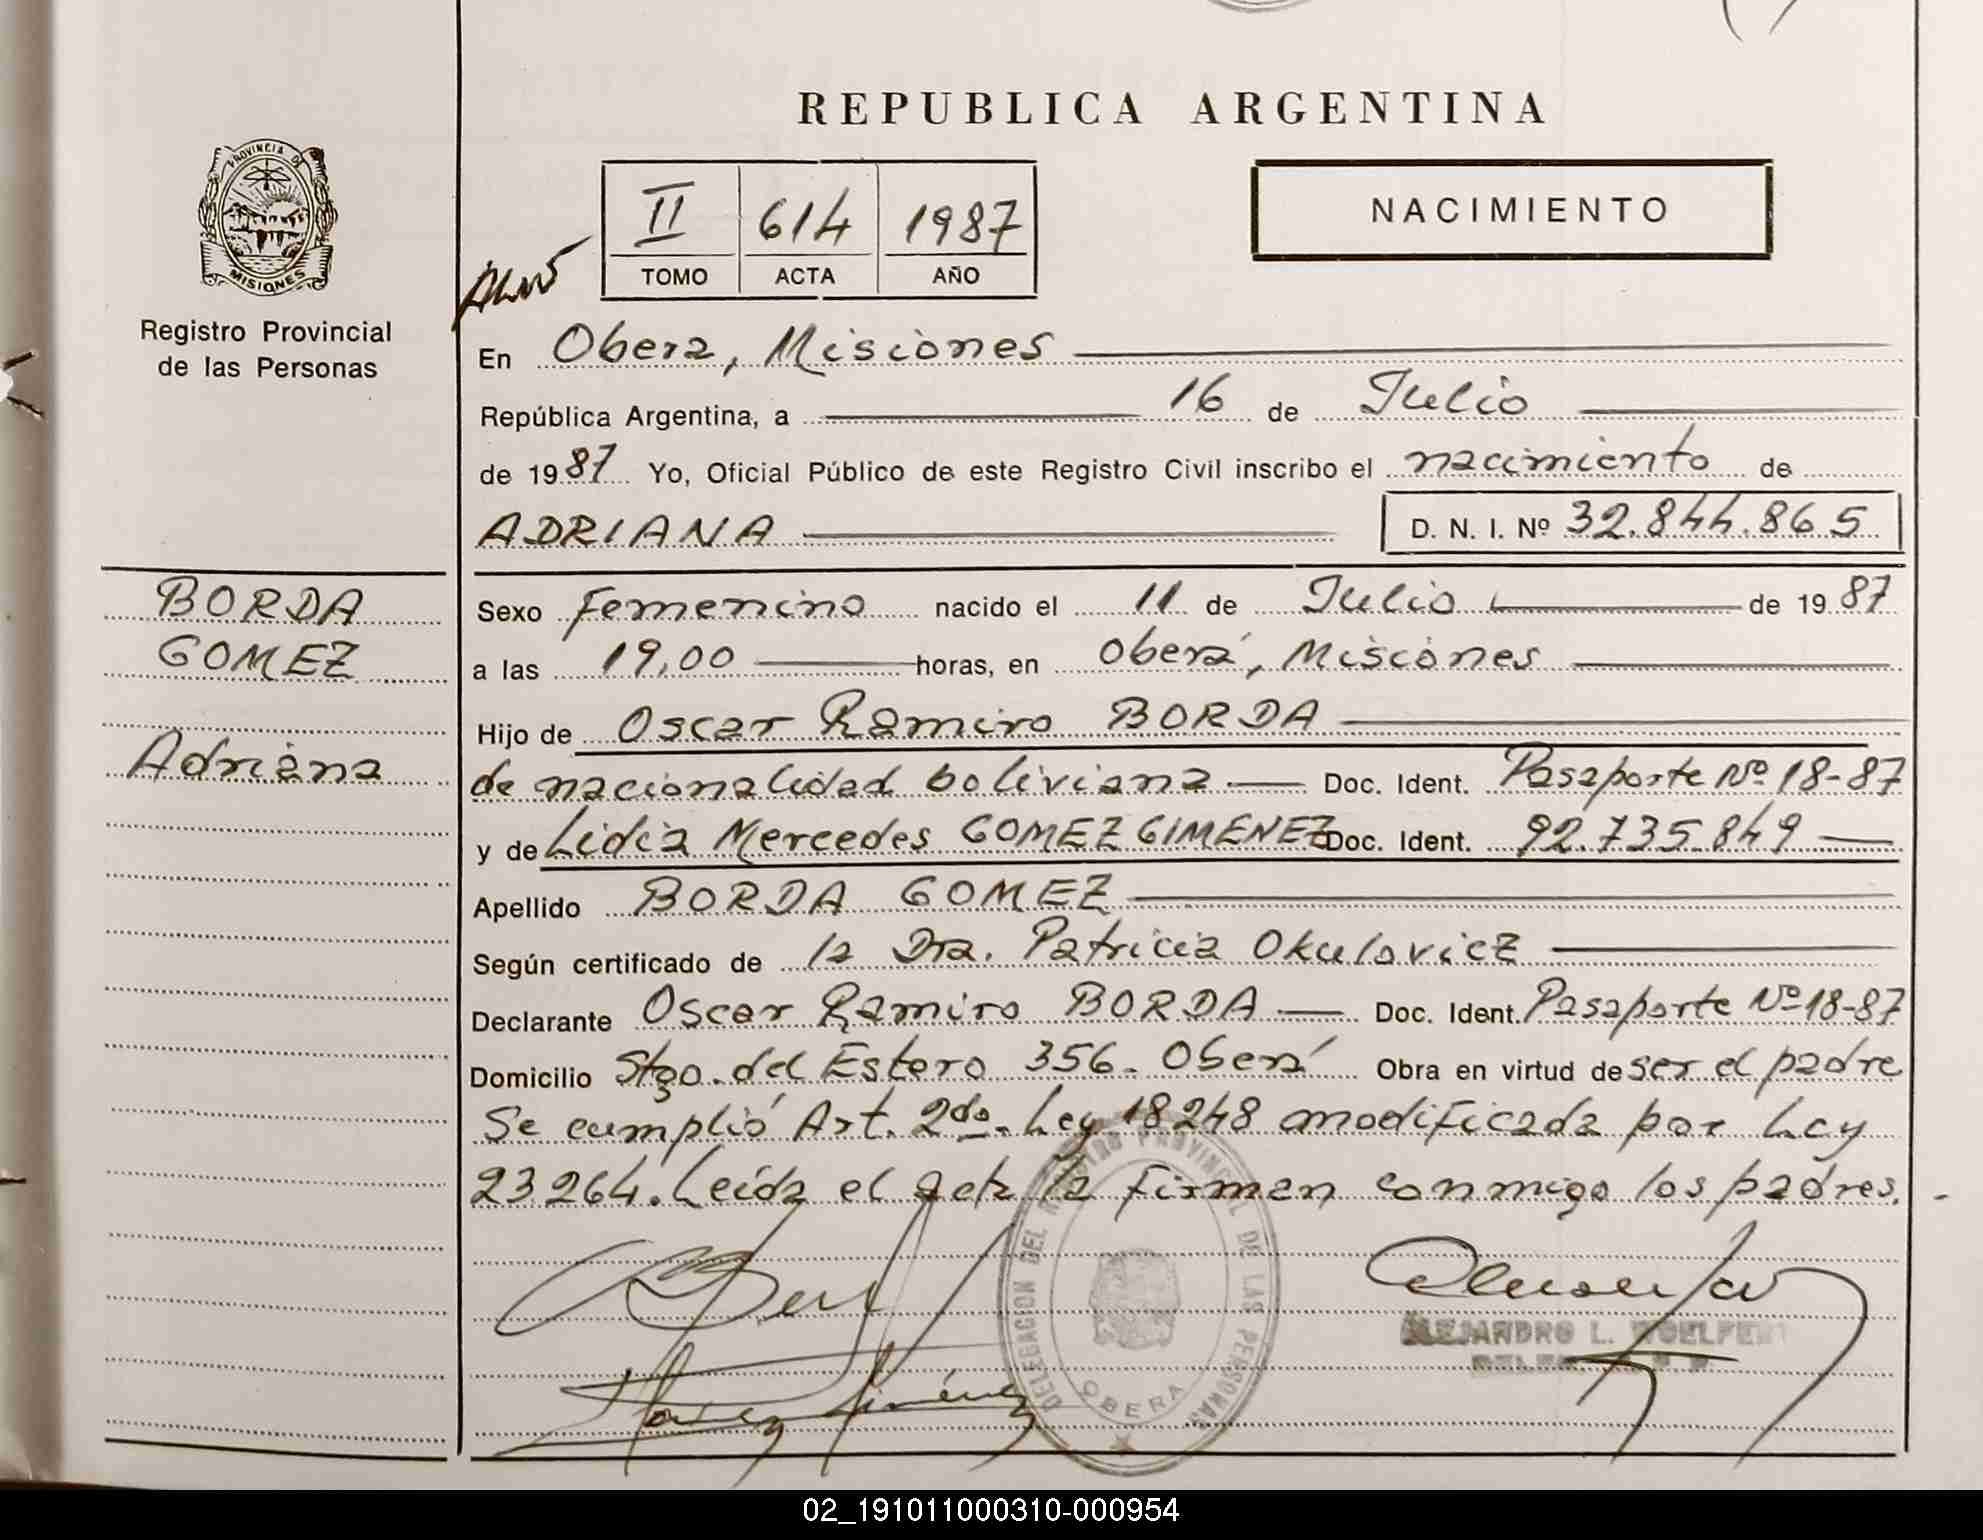 REPUBLICA ARGENTINA
PROVINCIA DE
MISIONES
Registro Provincial
de las Personas
II 614 1987
TOMO ACTA AÑO
NACIMIENTO
En Obera, Misiones
República Argentina, a 16 de Julio
de 1987 Yo, Oficial Público de este Registro Civil inscribo el nacimiento de
ADRIANA D. N. I. Nº 32.844.865
BORDA
GOMEZ
Adriana
Sexo Femenino nacido el 11 de Julio de 1987
a las 19,00 horas, en Oberá, Misiones
Hijo de Oscar Ramiro BORDA
de nacionalidad boliviana Doc. Ident. Pasaporte Nº 18-87
y de Lidia Mercedes GOMEZ GIMENEZ Doc. Ident. 92.735.849
Apellido BORDA GOMEZ
Según certificado de la Dra. Patricia Okulovicz
Declarante Oscar Ramiro BORDA Doc. Ident. Pasaporte Nº 18-87
Domicilio Stgo. del Estero 356. Oberá Obra en virtud de ser el padre
Se cumplió Art. 2do. Ley 18248 modificada por Ley
23264. Leída el acta la firman conmigo los padres.
DELEGACION DEL REGISTRO PROVINCIAL DE LAS PERSONAS
OBERA
ALEJANDRO L.
02_191011000310-000954